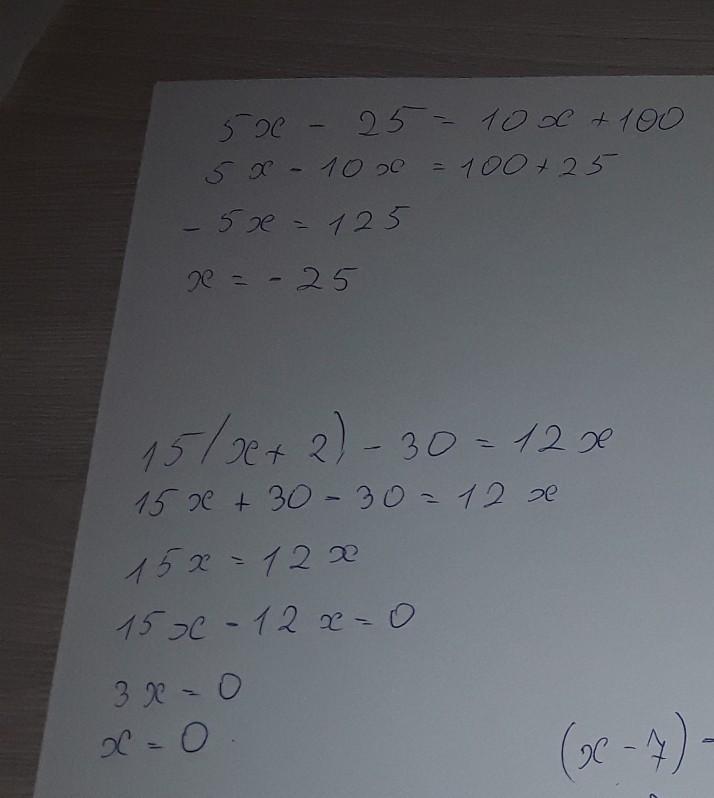 5x - 25 = 10x + 100
5x - 10x = 100 + 25
- 5x = 125
x = - 25
15(x + 2) - 30 = 12x
15x + 30 - 30 = 12x
15x = 12x
15x - 12x = 0
3x = 0
x = 0
(x - 7) -